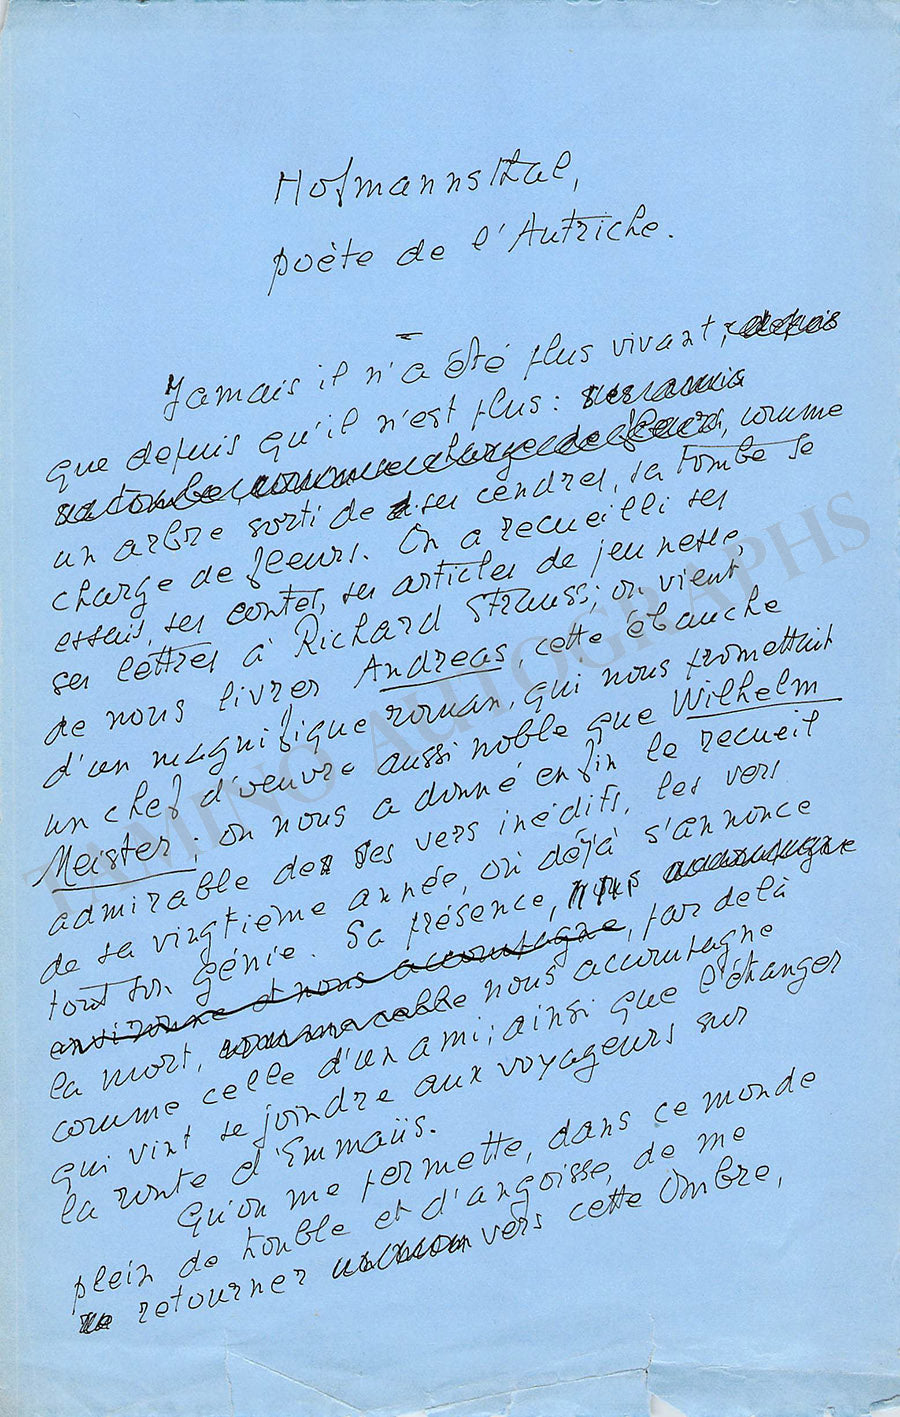 Hofmannsthal,
poète de l'Autriche.
Jamais il n'a été plus vivant, depuis
que depuis qu'il n'est plus :
sa tombe, comme charge de fleurs, comme
un arbre sorti de ses cendres, sa tombe se
charge de fleurs. On a recueilli ses
essais, ses contes, ses articles de jeunesse,
ses lettres à Richard Strauss; on vient
de nous livrer Andreas, cette ébauche
d'un magnifique roman, qui nous promettait
un chef d'oeuvre aussi noble que Wilhelm
Meister; on nous a donné enfin le recueil
admirable des ses vers inédits, les vers
de sa vingtième année, où déjà s'annonce
tout son génie. Sa présence, nous accompagne
environne et nous accompagne, par delà
la mort, nous accompagne
comme celle d'un ami; ainsi que l'étranger
qui vint se joindre aux voyageurs sur
la route d'Emmaüs.
Qu'on me permette, dans ce monde
plein de trouble et d'angoisse, de me
retourner vers cette Ombre,
TAMINO AUTOGRAPHS